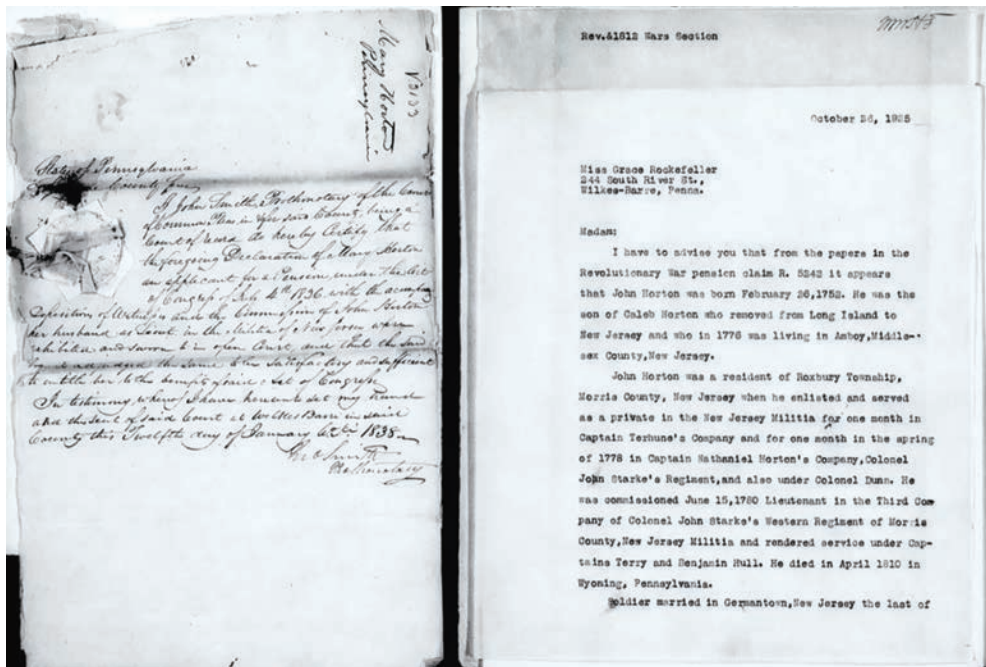 Mary Horton
Pennsylvania
State of Pennsylvania
County ss
I John Smith, Prothonotary of the Court
of Common Pleas in & for said County, being a
Court of record do hereby Certify that
the foregoing Declaration of Mary Horton
an applicant for a Pension under the Act
of Congress of July 4th 1836, with the
Deposition of Witnesses and the Commission of John Horton
her husband as Lieut in the Militia of New Jersey were
exhibited and sworn to in open Court, and that the said
Court adjudged the same to be Satisfactory and sufficient
to entitle her to the benefit of said Act of Congress
In testimony whereof I have hereunto set my hand
and the seal of said Court at Wilkes Barre in said
County this Twelfth day of January 1838
Jno Smith
Prothonotary
Rev.&1812 Wars Section
October 26, 1925
Miss Grace Rockefeller
244 South River St.,
Wilkes-Barre, Penna.
Madam:
I have to advise you that from the papers in the
Revolutionary War pension claim R. 5242 it appears
that John Horton was born February 26,1752. He was the
son of Caleb Horton who removed from Long Island to
New Jersey and who in 1776 was living in Amboy,Middle-
sex County,New Jersey.
John Horton was a resident of Roxbury Township,
Morris County, New Jersey when he enlisted and served
as a private in the New Jersey Militia for one month in
Captain Terhune's Company and for one month in the spring
of 1778 in Captain Nathaniel Horton's Company,Colonel
John Starke's Regiment,and also under Colonel Dunn. He
was commissioned June 15,1780 Lieutenant in the Third Com
pany of Colonel John Starke's Western Regiment of Morris
County,New Jersey Militia and rendered service under Cap-
tains Terry and Benjamin Hull. He died in April 1810 in
Wyoming, Pennsylvania.
Soldier married in Germantown,New Jersey the last of